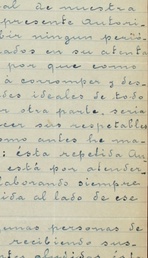 al de nuestra
presente Autori-
bir ningun perió
ados en su atenta
por que como
á corromper y des-
des ideales de todo
r otra parte, seria
cer sus respetables
omo antes he ma-
: ésta repetida Au
está por atender
laborando siempre
ida al lado de ese
umas personas de
recibiendo sus-